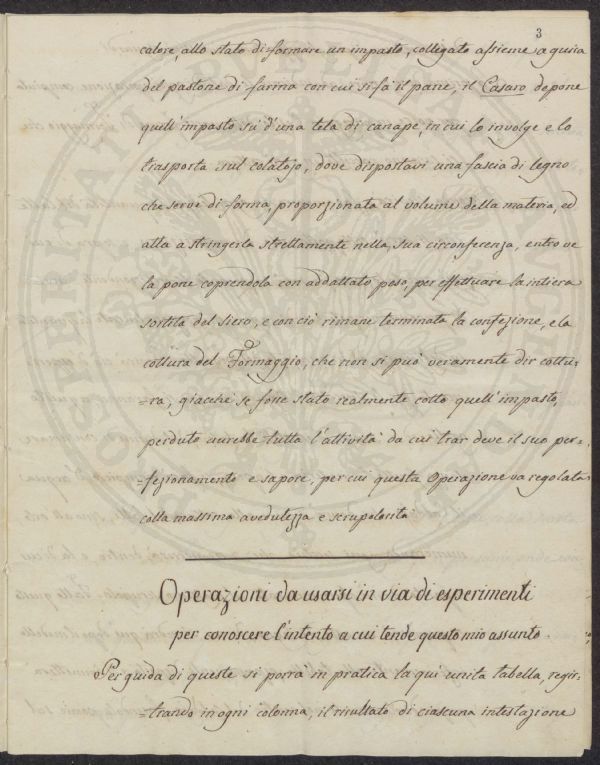 3
calore, allo stato di formare un impasto, collegato assieme a gusia
del pastone di farina con cui si fà il pane, il Casaro depone
quell' impasto su d'una tela di canape, in cui lo involge e lo
trasporta sul colatojo, dove dispostavi una fascia di legno
che serve di forma, proporzionata al volume della materia, ed
atta a stringerla strettamente nella sua circonferenza, entro ve
la pone coprendola con addattato peso, per effettuare la intiera
sortita del siero, e con ciò rimane terminata la confezione, e la
cottura del Formaggio, che non si può veramente dir cottu-
-ra, giacchè se fosse stato realmente cotto quell' impasto,
perduto avrebbe tutta l'attività da cui trar deve il suo per-
-fezionamento e sapore, per cui questa Operazione va regolata
colla massima avedutezza e scrupolosità
Operazioni da usarsi in via di esperimenti
per conoscere l'intento a cui tende questo mio assunto.
Per guida di queste si porrà in pratica la quì unita tabella, regis-
-trando in ogni colonna, il risultato di ciascuna intestazione